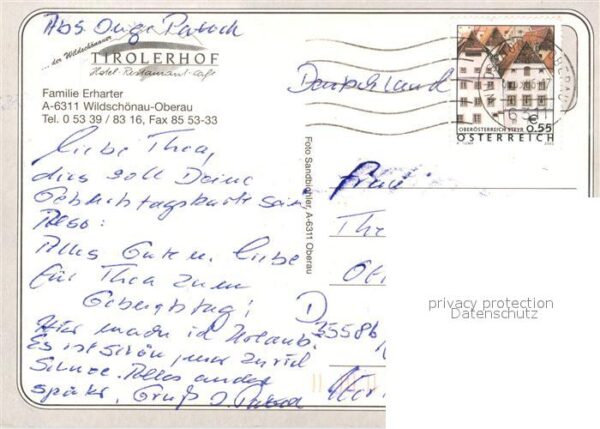 Abs. Inge
... der Wildschönauer
TIROLERHOF
Hotel-Restaurant-Café
Familie Erharter
A-6311 Wildschönau-Oberau
Tel. 0 53 39 / 83 16, Fax 85 53-33
Liebe Thea,
dies soll Deine
Geburtstagskarte sein
Also:
Alles Gute u. Liebe
für Thea zum
Geburtstag!
Hier machen ich Urlaub.
Es ist schön, nur zuviel
Schnee. Alles andere
später, Gruß I.
Foto Sandbichler, A-6311 Oberau
Deutschland
OBERÖSTERREICH STEYR
€ 0.55
ÖSTERREICH
6311
Frau
Th
D 35586
privacy protection
Datenschutz